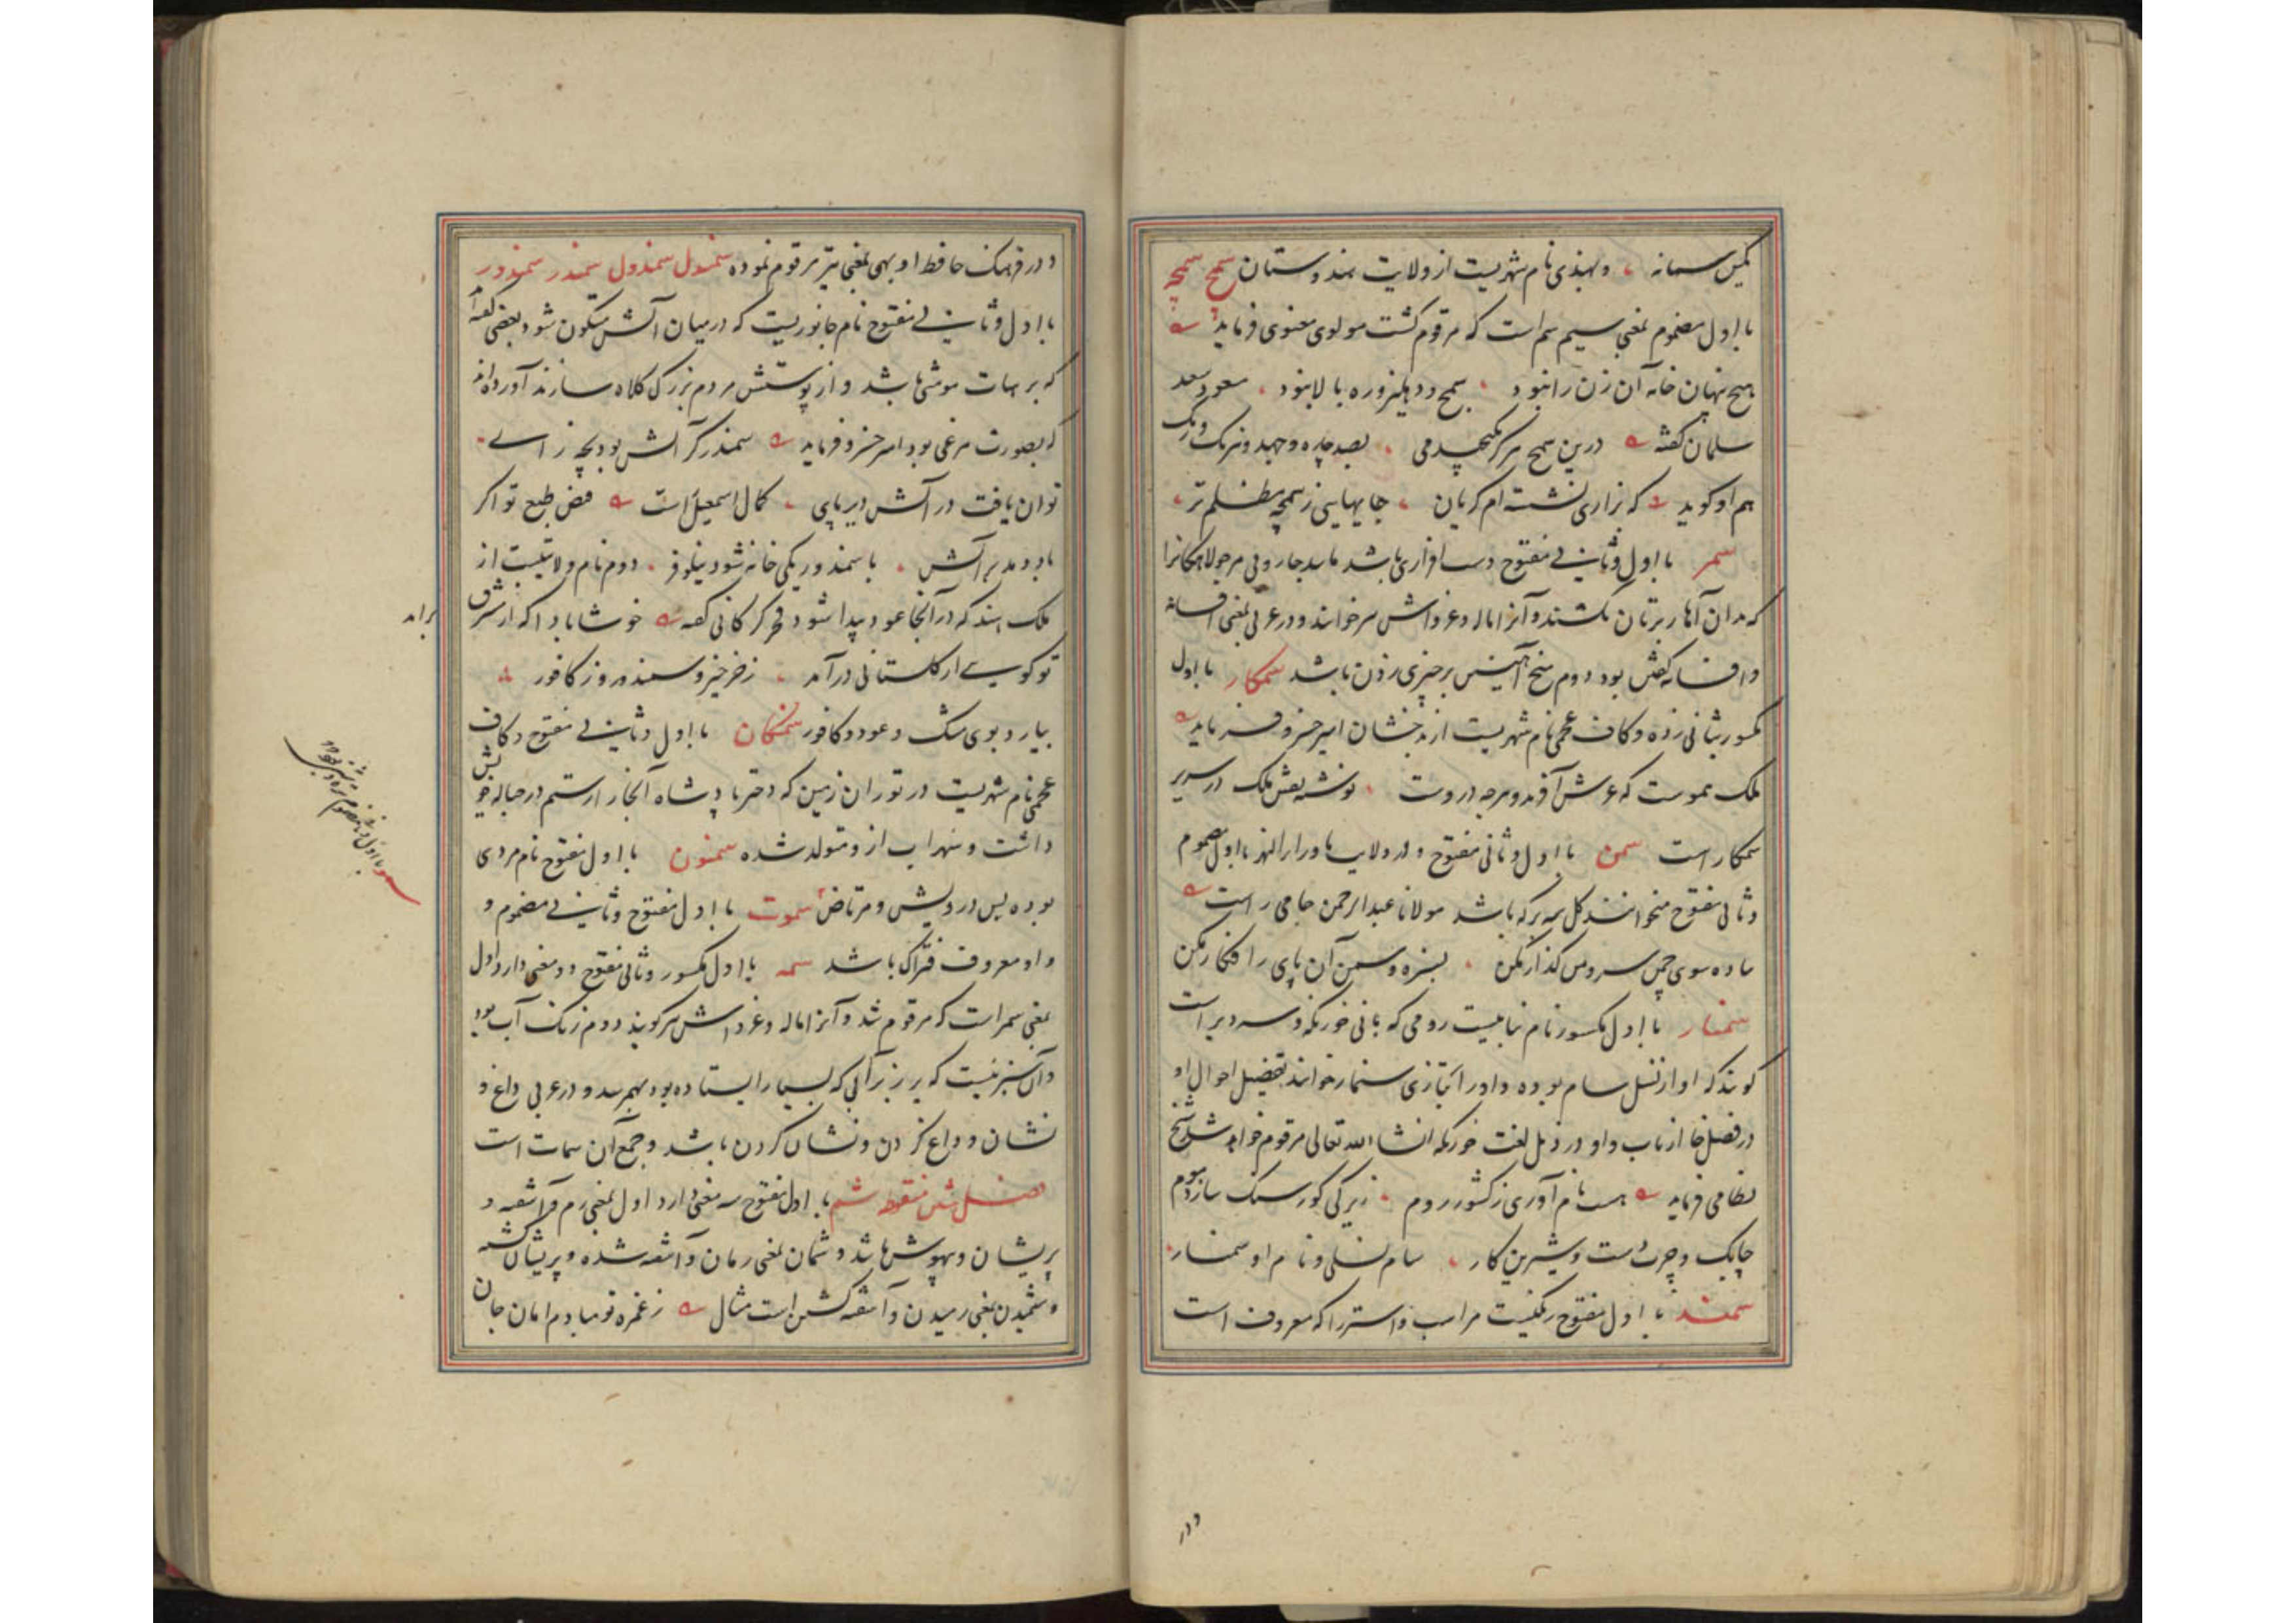 سمانه ، و بهندی نام شهریست از ولایت هندوستان سمج سمجه
بااول مضموم بمعنی سم است که مرقوم گشت مولوی معنوی فرماید
هیچ پنهان خانه آن زن را نبود ، سمج و دهلیز و ره بالا نبود ، مسعود سعد
سلمان گفته درین سمج
هم او گوید که بزاری نشسته ام گریان ، جایهایی ز سمجه مظلم تر ،
سمر بااول و ثانی مفتوح دست افزاری باشد مانند جاروبی مر جولاهگانرا
که بدان آهار بر تان کشند و آنرا ماله و غرواش نیز خوانند و در عربی بمعنی افسانه
و افسانه گفتن بود دوم میخ آهنین بر چیزی زدن باشد سمنگار بااول
مکسور بثانی زده و کاف عجمی نام شهریست از بدخشان امیر خسرو فرماید
ملک عموست که عرش آفرید و هرچه دروست ، نوشته نقش ملک در سریر
سمنگار است سمن بااول و ثانی مفتوح و در ولایت ماوراء النهر بااول مضموم
و ثانی مفتوح میخوانند گل سه برگه باشد مولانا عبدالرحمن جامی راست
ساده سوی چمن سرو من گذار مکن ، بسبزه و سمن آن پای را فگار مکن
سمنار بااول مکسور نام بناییست رومی که بانی خورنگه و سه دیر است
گویند که او از نسل سام بوده و او را بتازی سنمار خوانند تفصیل احوال او
در فصل خا از باب واو در ذیل لغت خورنگه انشاء الله تعالی مرقوم خواهد شد شیخ
نظامی فرماید هست نام آوری ز کشور روم ، زیرکی کو ز سنگ سازد موم
چابک و چرب دست و شیرین کار ، سام نسلی و نام او سمنار
سمند بااول مفتوح رنگیست مر اسب و استر را که معروف است
و در
و در فرهنگ حافظ اوبهی بمعنی تیر مرقوم نموده سمندل سمندول سمندر سمندور
بااول و ثانی مفتوح نام جانوریست که در میان آتش متکون شود بعضی گفته اند
که بر هیات موشی باشد و از پوستش مردم بزرگ کلاه سازند آورده اند
که بصورت مرغی بود امیر خسرو فرماید سمندر گر آتش بود
توان یافت در آتش دیرپای ، کمال اسمعیل است فیض طبع تو اگر
باد دمد بر آتش ، با سمندر یکی خانه شود نیلوفر ، دوم نام ولایتیست از
ملک هند که در آنجا عود پیدا شود فخر گرگانی گفته خوشا بادا که از مشرق
براید
تو گویی از گلستانی درآمد ، ز خرخیز و سمندور و ز کافور
بیارد بوی مشک و عود و کافور سمنگان بااول و ثانی مفتوح و کاف
عجمی نام شهریست در توران زمین که دختر پادشاه آنجا را رستم در حباله خویش
داشت و سهراب از و متولد شده سمنون بااول مفتوح نام مردی
بوده بس درویش و مرتاض سموت بااول مفتوح و ثانی مضموم و
واو معروف فتراک باشد سمه بااول مکسور و ثانی مفتوح دو معنی دارد اول
بمعنی سمر است که مرقوم شد و آنرا ماله و غرواش نیز گویند دوم زنگ آب بود
و آن سبزیست که بر زبر آبی که بسیار ایستاده بود بهم رسد و در عربی داغ و
نشان و داغ کردن و نشان کردن باشد و جمع آن سمات است
فصل شین منقوطه شم بااول مفتوح سه معنی دارد اول بمعنی رم و آشفته و
پریشان و بیهوش باشد و شمان بمعنی رمان و آشفته شده و پریشان گشته
و شمیدن بمعنی رمیدن و آشفته گشتن است مثال ز غمزه تو مبادم امان جان